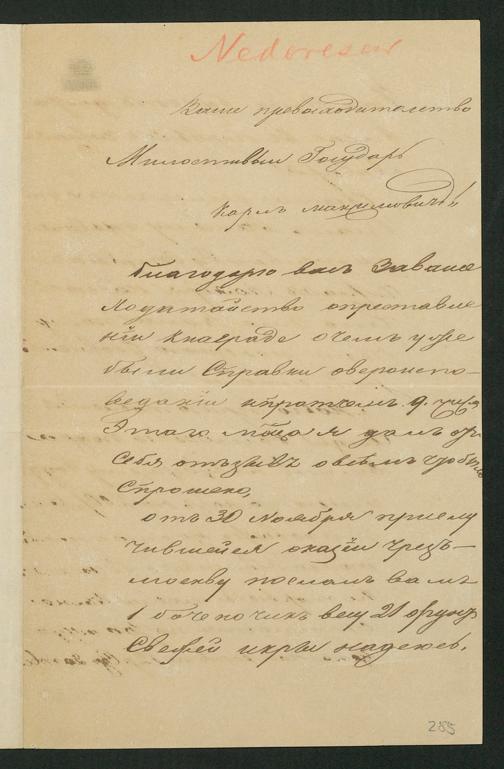 Nedoresow
Ваше превосходительство
Милостивый Государь
Карлъ Максимовичъ!!
благодарю васъ Заваше
ходатайство опреставле
нiи кнаграде очемъ уже
были Справки овероиспо-
ведании ипротчемъ. 9. чис
Этаго мца я далъ отъ
Себя отзывъ овсѣмъ чтобыло
Спрошено,
отъ 30 Ноября прислу
чившейся оказiи чрезъ-
москву послалъ вамъ
1 боченочикъ весу 21 фунтъ
Свежей икры надеюсь,
285